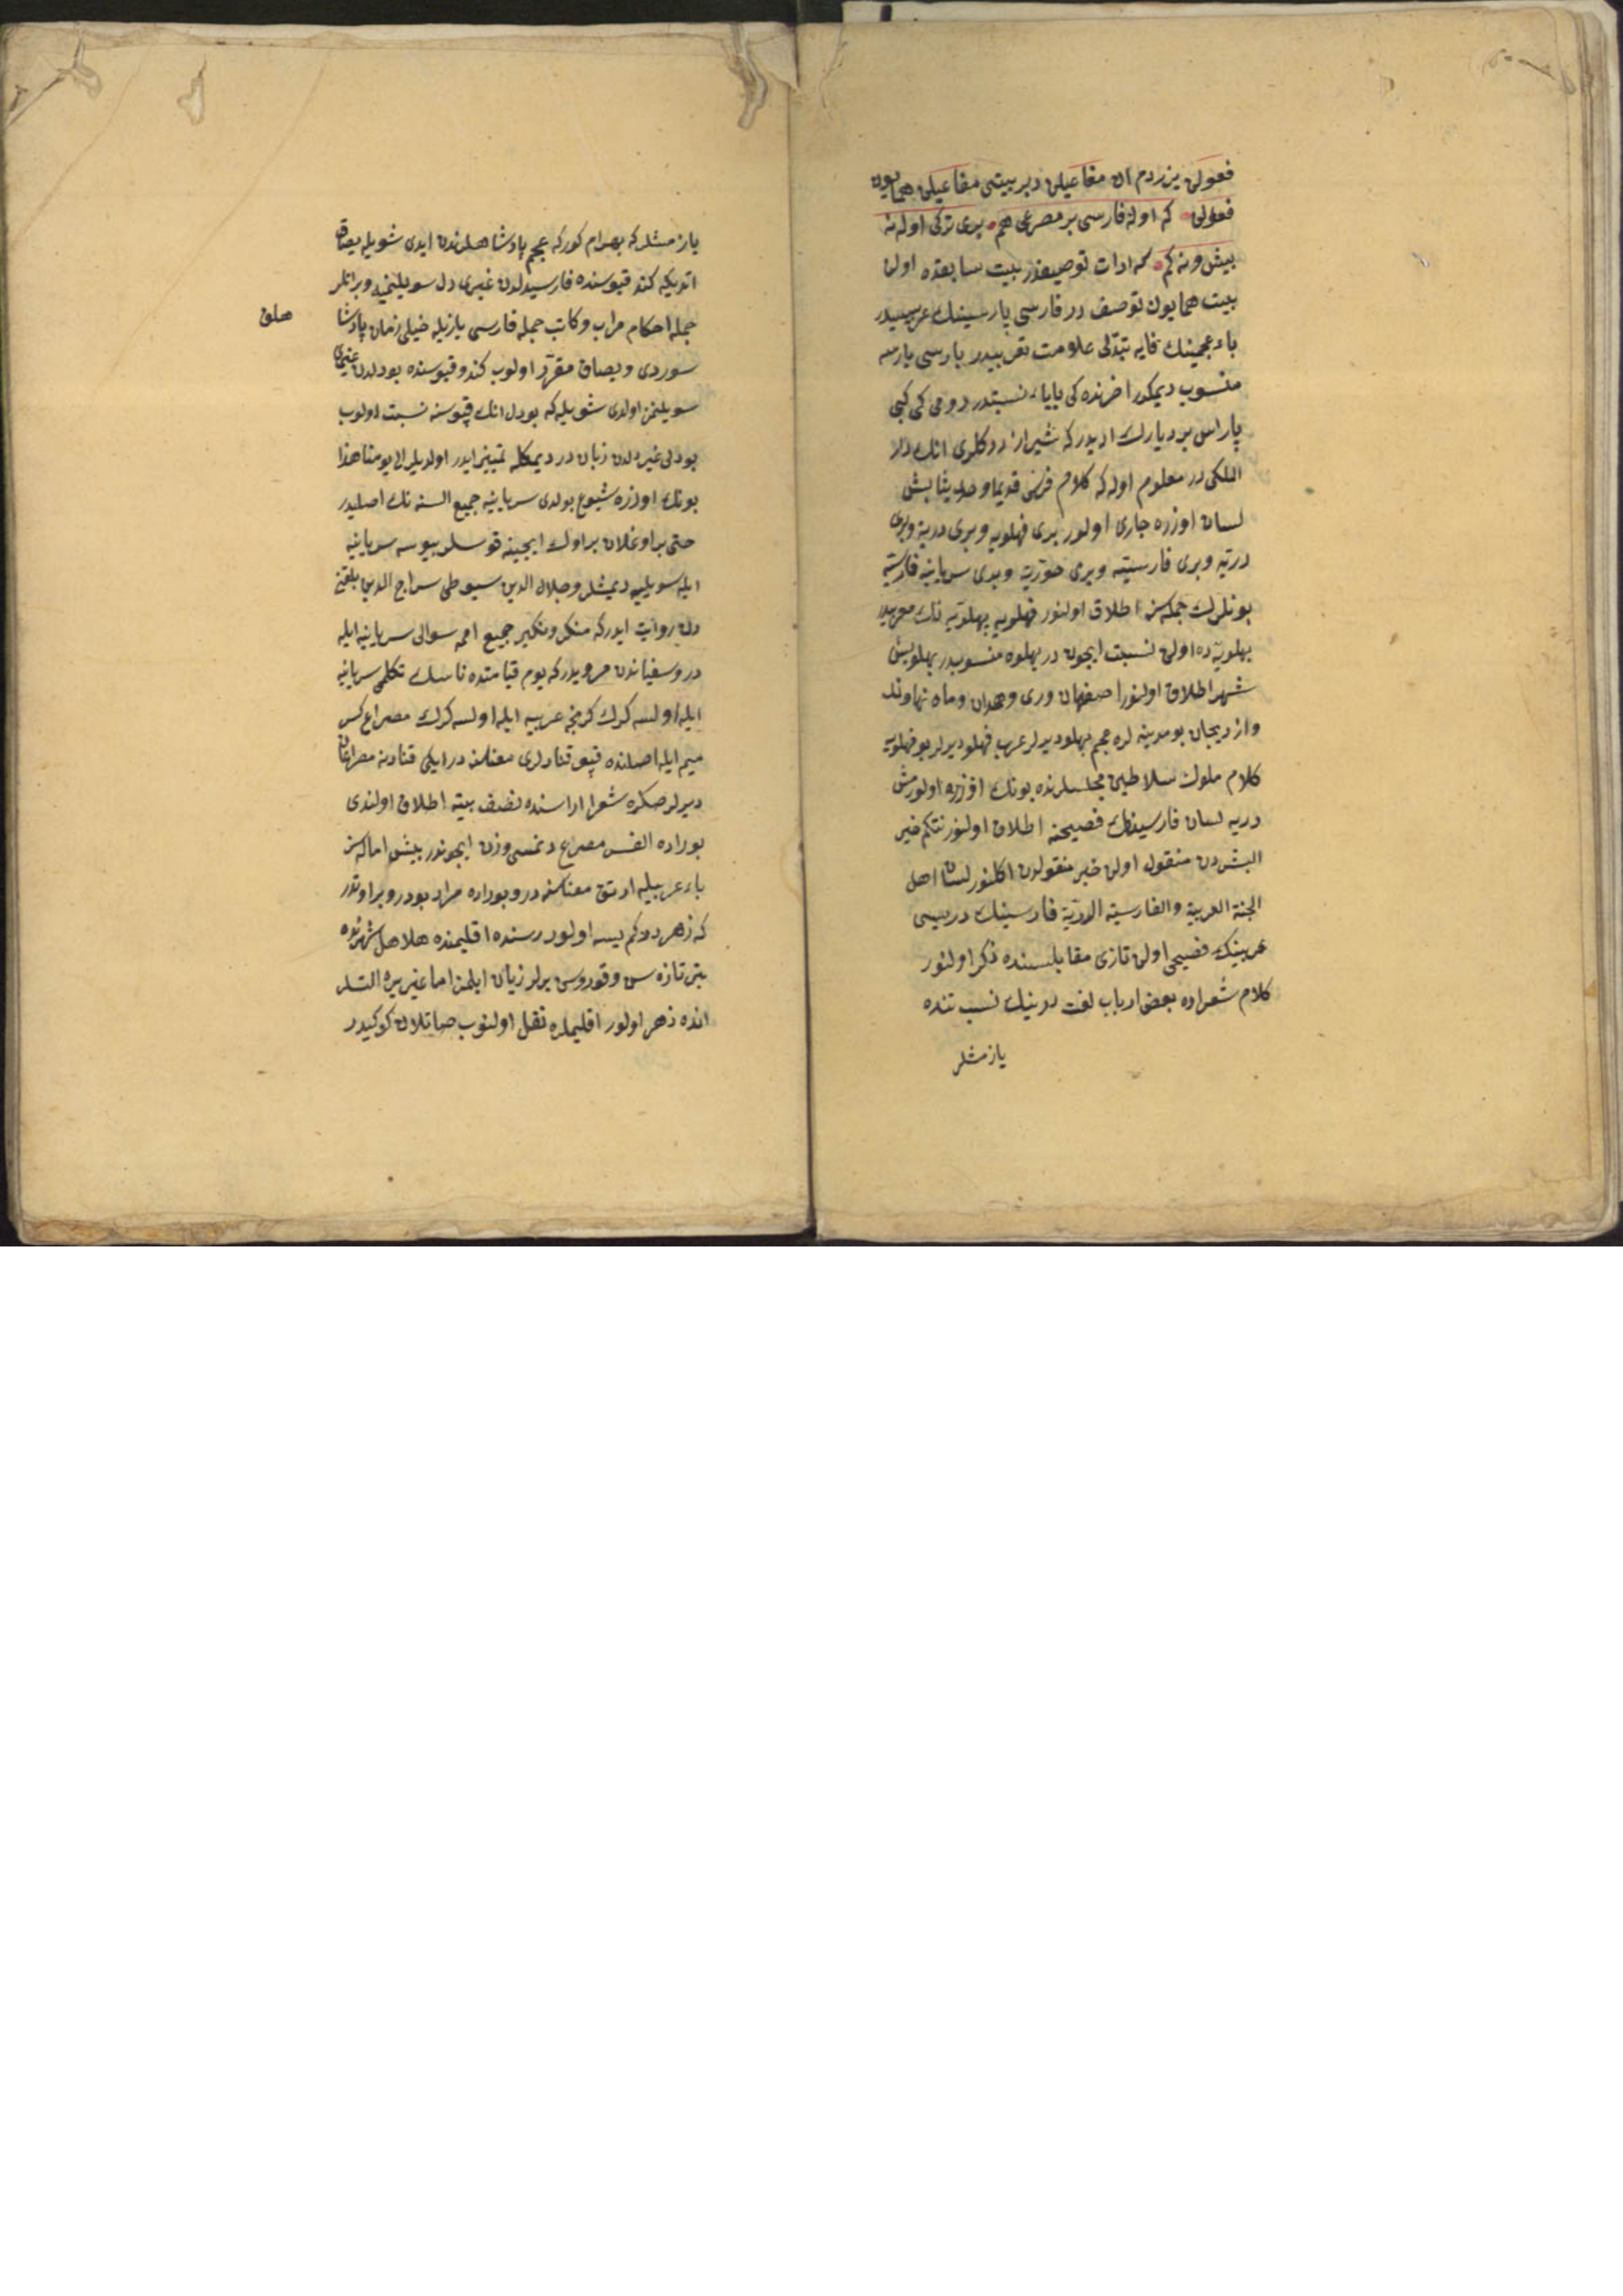 فعولن یزردم ان مفاعیلن دبر بیتی مفاعیلن همایون
فعولن که اوله فارسی بر مصرعی هم بری ترکی اوله نه
بیش ونه کم که ادات توصیفدر بیت سابقده اولن
بیت همایون توصف در فارسی پارسینك عربیسیدر
باء عجمینك فایه تبدلی علامت تعریبیدر پارسی پارسه
منسوب دیمکدر اخرنده کی یایاء نسبتدر رومی کی کبی
پارس بر دیارك ادیدر که شیراز ددکلری انك در
الملکی در معلوم اوله که کلام فرس قدیما وحدیثا بش
لسان اوزره جاری اولور بری فهلویه وبری دریه وبری
دریه وبری فارسیته وبری خوزیه وبری سریانیه فارسیه
بونلرك جمله سنه اطلاق اولنور فهلویه پهلویه نك معربیدر
پهلویه ده اولن نسبت ایچون در پهلوه منسوبدر پهلو بش
شهر اطلاق اولنور اصفهان وری وهمدان وماه نهاوند
وازدبیجان بو مدینه لره عجم پهلو دیرلر عرب فهلو دیرلر بو فهلویه
کلام ملوك سلاطین مجلسلرنده بونك اوزره اولورمش
دریه لسان فارسینك فصیحنه اطلاق اولنور نتکم خیر
البشردن منقول اولن خبر منقولدن اکلنور لسان اهل
الجنة العربیة والفارسیة الدریة فارسینك دریسی
عربینك فصیحی اولن تازی مقابلسنده ذکر اولنور
کلام شعراده بعض ارباب لغت درینك نسبتنده
یازمشلر
یازمشلر که بهرام کور که عجم پادشاهلرندن ایدی شویله یصاق
اتدیکه کند قپوسنده فارسیدلدن غیری دل سویلنمیه وبراتلر
جمله احکام مراب وکاتب جمله فارسی یازیله خیلی زمان پادشا
هلق
سوردی ویصاق مقرر اولوب کندو قپوسنده بو دلدن غیری
سویلنمز اولدی شویله که بو دل انك قپوسنه نسبت اولوب
بو دلی غیر دلدن زبان در دیمکله تمییز ایدر اولدیلر الی یومنا هذا
بونك اوزره شیوع بولدی سریانیه جمیع السنه نك اصلیدر
حتی بر اوغلان بر اوك ایچینه قوسلر بیوسه سریانیه
ایله سویلیه دیمشلر وجلال الدین سیوطی سراج الدین بلقینی
دن روایت ایدر که منکر ونکیر جمیع امه سوالی سریانیه ایله
در وسفیاندن مرویدر که یوم قیامتده ناسك تکلمی سریانیه
ایله اولسه کرك کرنجه عربیه ایله اولسه کرك مصراع کسر
میم ایله اصلنده قپو قنادلری معناسنه در ایکی قنادنه مصراعان
دیرلر صکره شعرا اراسنده نصف بیته اطلاق اولندی
بوراده الفسز مصراع دنمسی وزن ایچوندر بیش اماله سز
باء عربیله ارتق معناسنه در وبوراده مراد بودر وبر اوتدر
که زهردر کم یسه اولور رسنده اقلیمنده هلاهل شهرنده
بتر تازه سن وقوروسن یرلر زیان ایلمز اما غیر یره التسلر
انده زهر اولور اقلیمله نقل اولنوب صاتلان کوکیدر